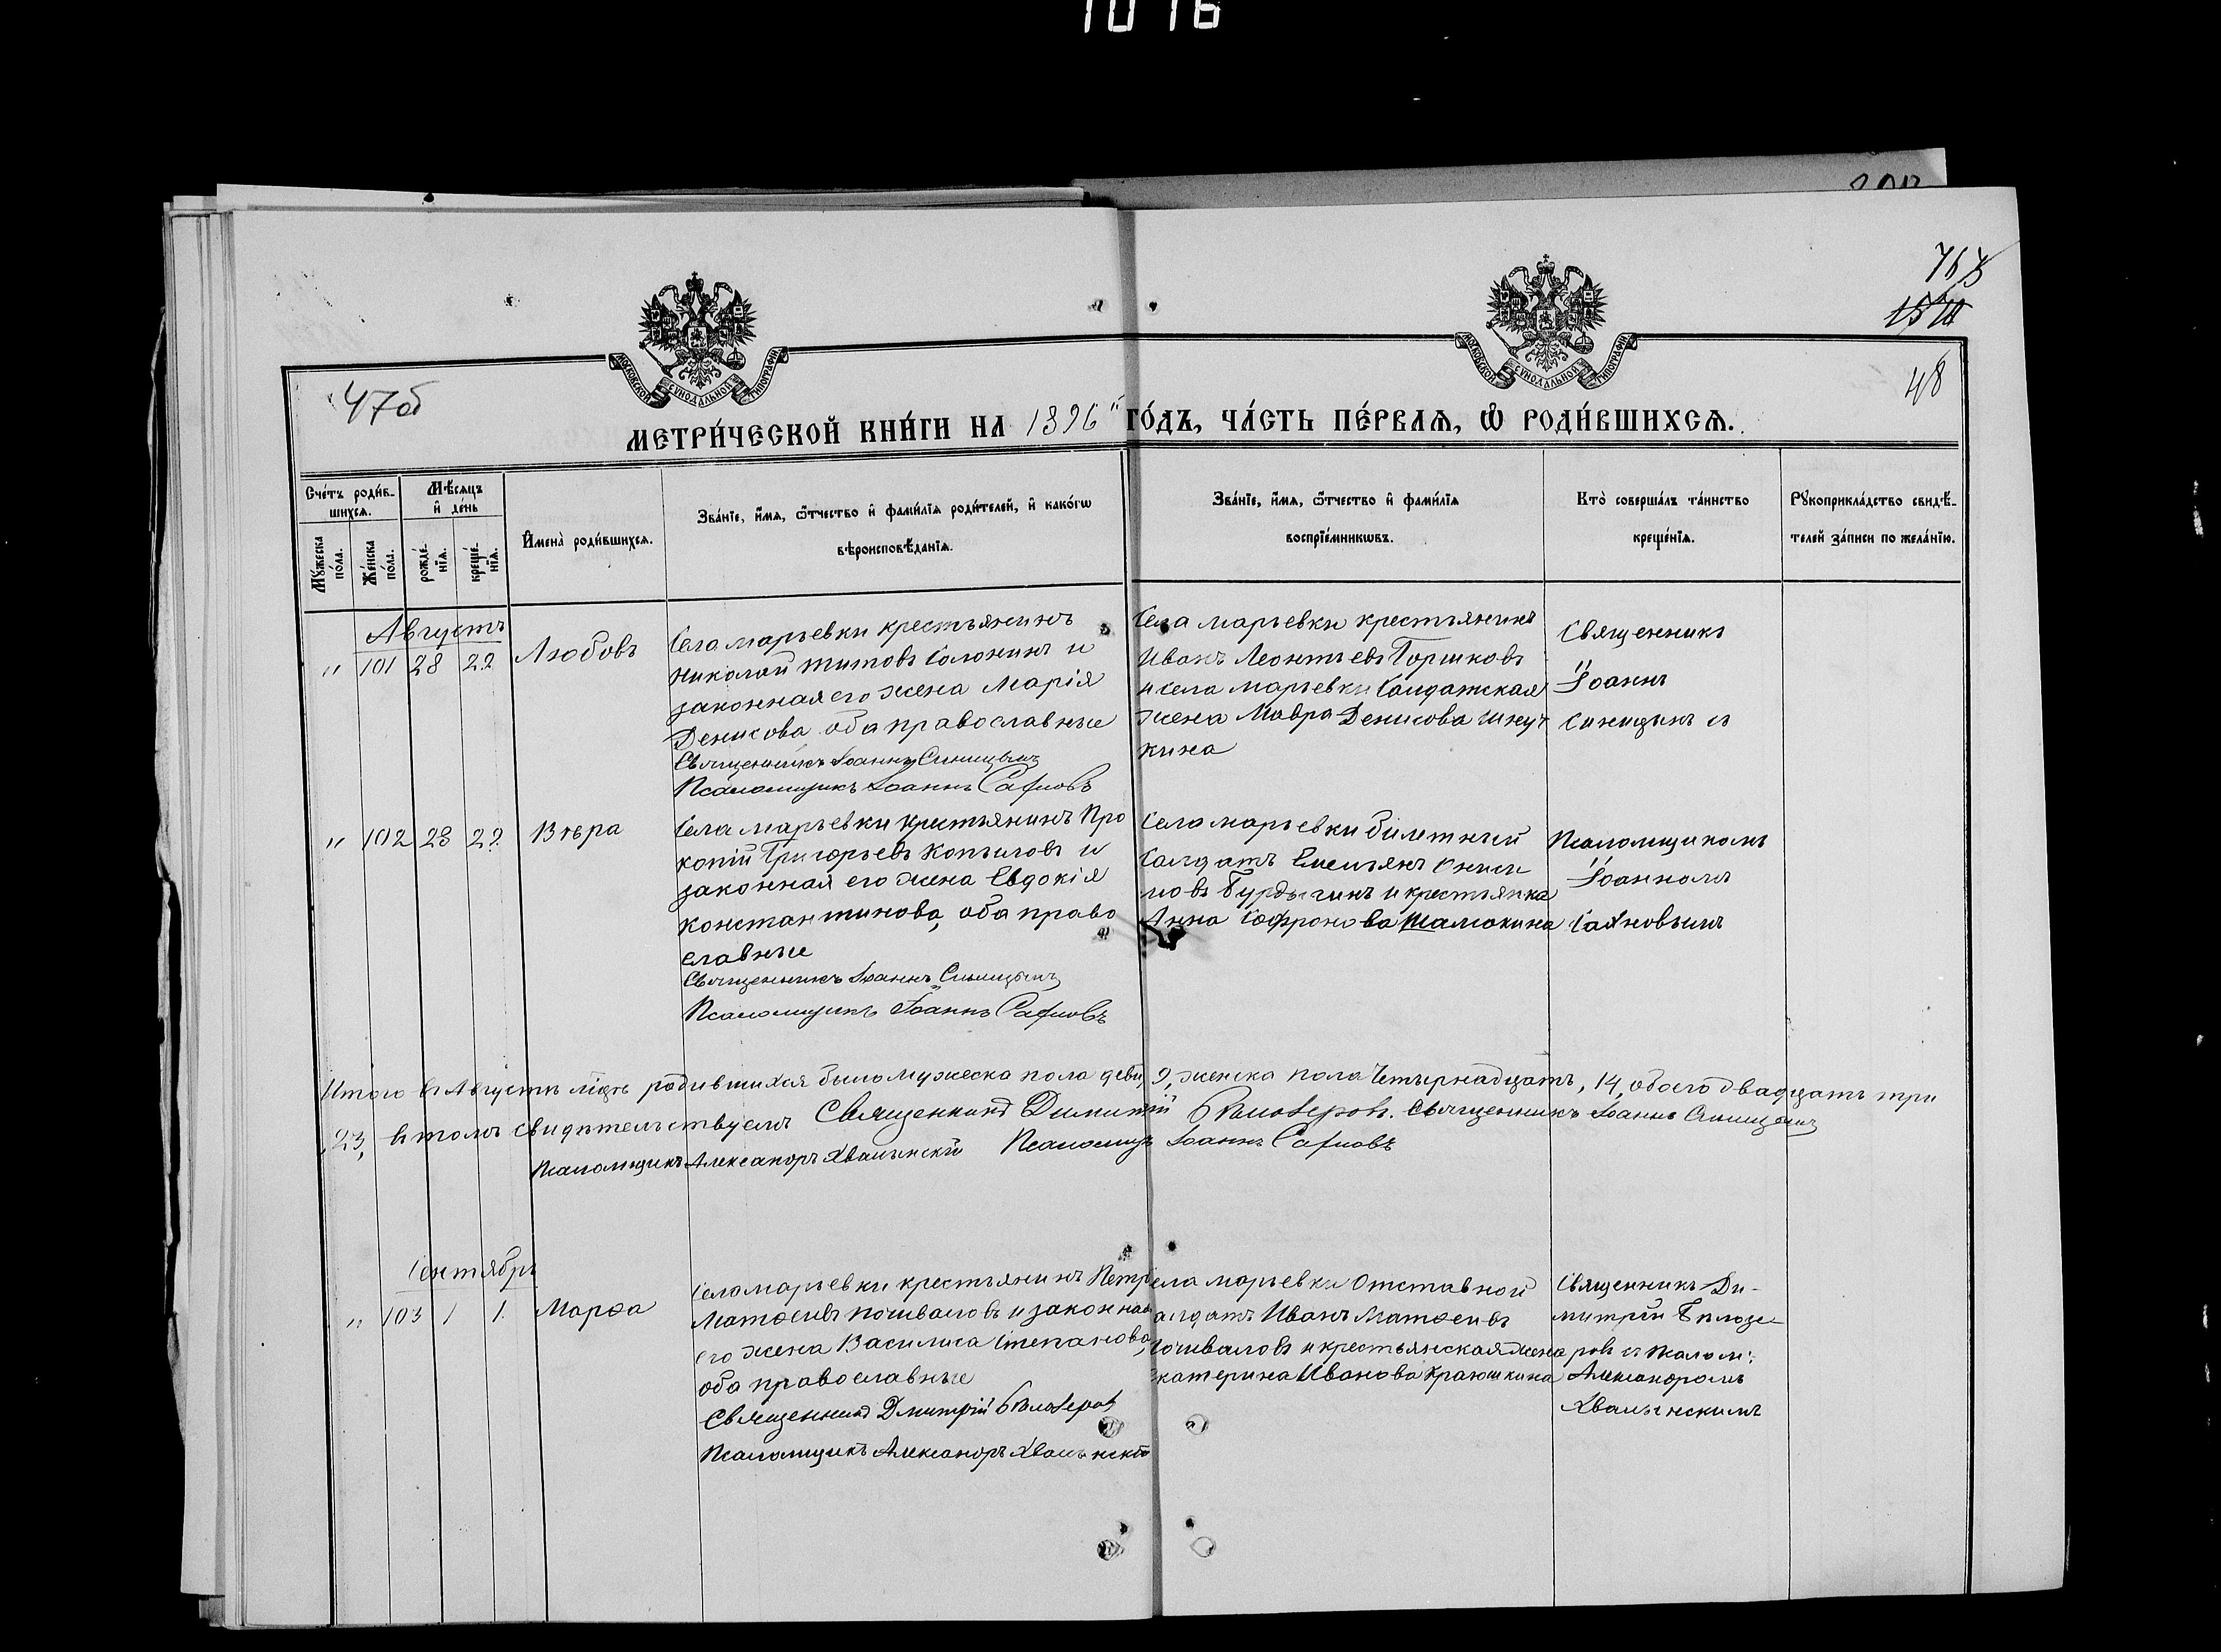 1016
767
1510
47об
48
МЕТРИ́ЧЕСКОЙ КНИ́ГИ НА 1896 ГО́ДЪ, ЧА́СТЬ ПЕ́РВАЯ, Ѡ҆ РОДИ́ВШИХСЯ.
МОСКОВСКОЙ СУНОДАЛЬНОЙ ТИПОГРАФІИ
МОСКОВСКОЙ СУНОДАЛЬНОЙ ТИПОГРАФІИ
Сче́тъ роди́в-
шихся.
Мѣ́сяцъ
и҆ де́нь
Му́жеска по́ла.
Же́нска по́ла.
рожде́-нїя.
креще́-нїя.
И҆мена̀ роди́вшихся.
Зва́нїе, и҆́мя, ѻ҆́тчество и҆ фами́лїя роди́телей, и҆ како́гѡ
вѣроисповѣ́данїя.
Зва́нїе, и҆́мя, ѻ҆́тчество и҆ фами́лїя
воспрїе́мникѡвъ.
Кто̀ соверша́лъ та́инство
креще́нїя.
Рꙋкоприкла́дство свидѣ́-
телей за́писи по жела́нїю.
Августъ
" 101 28 22 Любовь
Села марьевки крестьянинъ
Николай Титовъ Солонинъ и
законная его жена Марія
Денисова оба православные
Священникъ Іоаннъ Синицынъ
Псаломщикъ Іоаннъ Сафновъ
Села марьевки крестьянинъ
Иванъ Леонтьевъ Горшковъ
и села марьевки Солдатская
жена Мавра Денисова
кина
Священникъ
Іоаннъ
Синицынъ съ
" 102 28 22 Вѣра
Села марьевки крестьянинъ Про
копій Григорьевъ Копыловъ и
законная его жена Евдокія
Константинова, оба право
славные
Священникъ Іоаннъ Синицынъ
Псаломщикъ Іоаннъ Сафновъ
Села марьевки билетный
Солдатъ Емельянъ Ониси
мовъ Бурдыгинъ и крестьянка
Анна Софронова Шамонина
Псаломщикомъ
Іоанномъ
Сафновымъ
Итого въ Августѣ мцѣ родившихся было мужеска пола девя, 9, женска пола Четырнадцать, 14, обоего двадцать три
,23, въ томъ свидѣтельствуемъ Священникъ Димитрій Бѣлозеровъ. Священникъ Іоаннъ Синицынъ
Псаломщикъ Александръ Хвалынскій Псаломщ Іоаннъ Сафновъ
Сентябрь
" 103 1 1 Марѳа
Села марьевки крестьянинъ Петръ
Матѳеевъ Пошиваловъ и законная
его жена Василиса Степанова,
оба православные
Священникъ Дмитрій Бѣлозеровъ
Псаломщикъ Александръ Хвалынскій
ела марьевки Отставной
алдатъ Иванъ Матѳеевъ
Пошиваловъ и крестьянская жена
Екатерина Иванова Краюшкина
Священникъ Ди-
митрій Бѣлозе-
ровъ съ псалом:
Александромъ
Хвалынскимъ